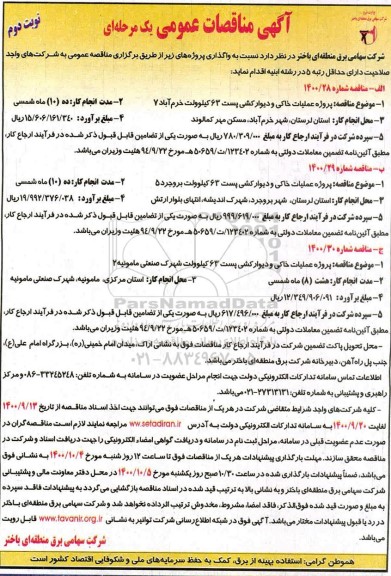 آگهی مناقصات عمومی یک مرحله‌ای
نوبت دوم
شرکت سهامی برق منطقه‌ای باختر در نظر دارد نسبت به واگذاری پروژه‌های زیر از طریق برگزاری مناقصه عمومی به شرکت‌های واجد
صلاحیت دارای حداقل رتبه ۵ در رشته ابنیه اقدام نماید:
الف- مناقصه شماره ۱۴۰۰/۲۸
۱- موضوع مناقصه: پروژه عملیات خاکی و دیوارکشی پست ۶۳ کیلوولت خرم‌آباد ۷
۲- مدت انجام کار: ده (۱۰) ماه شمسی
۳- محل انجام کار: استان لرستان، شهر خرم‌آباد، مسکن مهر کمالوند
۴- مبلغ برآورد: ۱۵/۶۰۶/۱۶۱/۳۴۰ ریال
۵- سپرده شرکت در فرآیند ارجاع کار به مبلغ ۷۸۰/۳۰۹/۰۰۰ ریال به صورت یکی از تضامین قابل قبول ذکر شده در فرآیند ارجاع کار،
مطابق آئین‌نامه تضمین معاملات دولتی به شماره ۱۲۳۴۰۲/ت۵۰۶۵۹هـ مورخ ۹۴/۹/۲۲ هئیت وزیران می‌باشد.
ب- مناقصه شماره ۱۴۰۰/۲۹
۱- موضوع مناقصه: پروژه عملیات خاکی و دیوارکشی پست ۶۳ کیلوولت بروجرد ۵
۲- مدت انجام کار: ده (۱۰) ماه شمسی
۳- محل انجام کار: استان لرستان، شهر بروجرد، شهرک اندیشه، انتهای بلوار ارتش
۴- مبلغ برآورد: ۱۹/۹۹۲/۳۷۶/۰۳۸ ریال
۵- سپرده شرکت در فرآیند ارجاع کار به مبلغ ۹۹۹/۶۱۹/۰۰۰ ریال به صورت یکی از تضامین قابل قبول ذکر شده در فرآیند ارجاع کار،
مطابق آئین‌نامه تضمین معاملات دولتی به شماره ۱۲۳۴۰۲/ت۵۰۶۵۹هـ مورخ ۹۴/۹/۲۲ هئیت وزیران می‌باشد.
ج- مناقصه شماره ۱۴۰۰/۳۰
۱- موضوع مناقصه: پروژه عملیات خاکی و دیوارکشی پست ۶۳ کیلوولت شهرک صنعتی مامونیه ۲
۲- مدت انجام کار: هشت (۸) ماه شمسی
۳- محل انجام کار: استان مرکزی، مامونیه، شهرک صنعتی مامونیه
۴- مبلغ برآورد: ۱۲/۳۴۹/۹۰۶/۰۹۱ ریال
۵- سپرده شرکت در فرآیند ارجاع کار به مبلغ ۶۱۷/۴۹۶/۰۰۰ ریال به صورت یکی از تضامین قابل قبول ذکر شده در فرآیند ارجاع کار،
مطابق آئین‌نامه تضمین معاملات دولتی به شماره ۱۲۳۴۰۲/ت۵۰۶۵۹هـ مورخ ۹۴/۹/۲۲ هئیت وزیران می‌باشد.
- محل تحویل پاکت تضمین شرکت در فرآیند ارجاع کار مناقصات فوق به نشانی اراک، میدان امام خمینی(ره)، بزرگراه امام علی(ع)،
جنب پل راه‌آهن، دبیرخانه شرکت برق منطقه‌ای باختر می‌باشد.
اطلاعات تماس سامانه تدارکات الکترونیکی دولت جهت انجام مراحل عضویت در سامانه به شماره تلفن: ۳۳۲۴۵۲۴۸-۰۸۶ و مرکز
راهبری و پشتیبانی به شماره تلفن: ۲۷۳۱۳۱۳۱-۰۲۱ می‌باشد.
- کلیه شرکت‌های واجد شرایط متقاضی شرکت در هر یک از مناقصات فوق می‌توانند جهت اخذ اسناد مناقصه از تاریخ ۱۴۰۰/۹/۱۳
لغایت ۱۴۰۰/۹/۲۰ به سامانه تدارکات الکترونیکی دولت به آدرس www.setadiran.ir مراجعه نمایند لازم است مناقصه گران در
صورت عدم عضویت قبلی در سامانه، مراحل ثبت نام در سامانه و دریافت گواهی امضاء الکترونیکی را جهت دریافت اسناد و شرکت در
مناقصه محقق سازند. مهلت بارگذاری پیشنهادات هر یک از مناقصات فوق تا ساعت ۱۲ روز شنبه مورخ ۱۴۰۰/۱۰/۴ به نشانی فوق
می‌باشد، ضمناً پیشنهادات بارگذاری شده در ساعت ۱۰/۳۰ صبح روز یکشنبه مورخ ۱۴۰۰/۱۰/۵ در محل دفتر معاونت مالی و پشتیبانی
شرکت سهامی برق منطقه‌ای باختر و به نشانی بالا به ترتیب قید شده در اسناد مناقصه بازگشایی می‌گردد به پیشنهادات فاقد سپرده
به مبلغ و صورت قید شده فوق‌الذکر، فاقد امضاء، مشروط، مخدوش ترتیب اثر داده نخواهد شد و شرکت سهامی برق منطقه‌ای باختر
در رد یا قبول پیشنهادات مختار می‌باشد. آگهی فوق در شبکه اطلاع‌رسانی شرکت توانیر به نشانی www.tavanir.org.ir قابل رویت
می‌باشد.
شرکت سهامی برق منطقه‌ای باختر
هموطن گرامی: استفاده بهینه از برق، کمک به حفظ سرمایه‌های ملی و شکوفایی اقتصاد کشور است